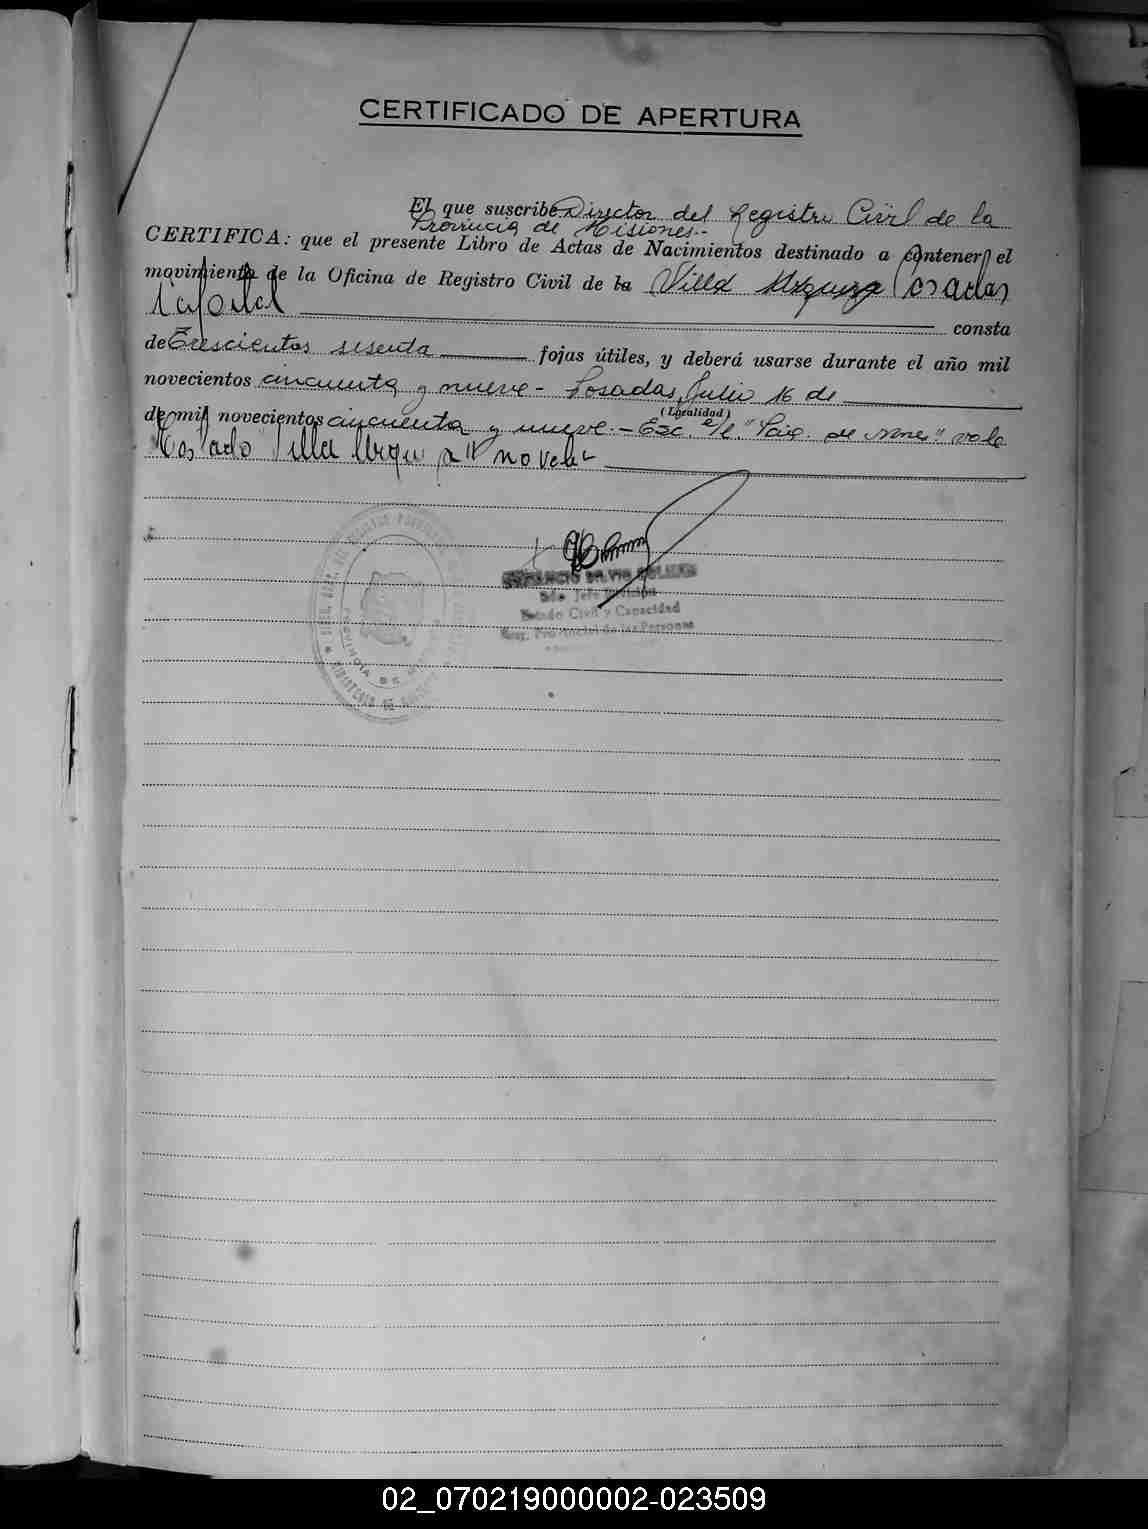 CERTIFICADO DE APERTURA
El que suscribe Director del Registro Civil de la
Provincia de Misiones.-
CERTIFICA: que el presente Libro de Actas de Nacimientos destinado a contener el
movimiento de la Oficina de Registro Civil de la Villa Urquiza Posadas
Capital consta
de Trescientos sesenta fojas útiles, y deberá usarse durante el año mil
novecientos cincuenta y nueve - Posadas, Julio 16 de
(Localidad)
de mil novecientos cincuenta y nueve.- Esc. s/r. " de " vale
Testado Villa Urquiza " no vale
Jefe División
Estado Civil y Capacidad
Reg. Provincial de las Personas
PROVINCIA DE
02_070219000002-023509